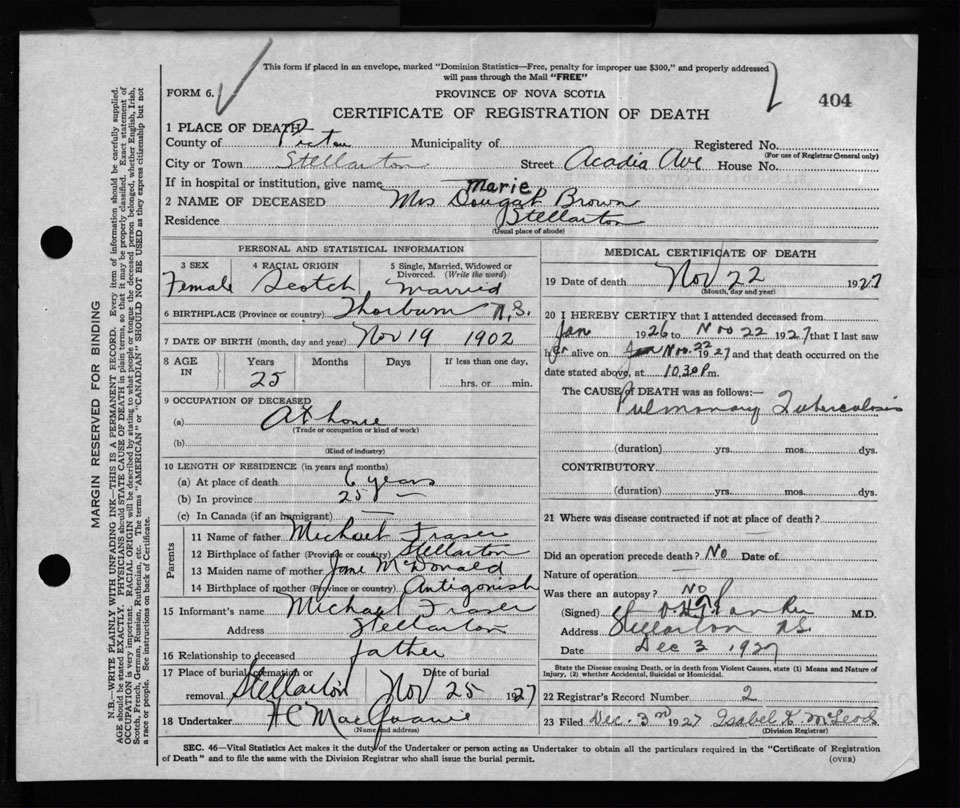 This form if placed in an envelope, marked "Dominion Statistics—Free, penalty for improper use $300," and properly addressed
will pass through the Mail "FREE"
FORM 6.
PROVINCE OF NOVA SCOTIA
404
CERTIFICATE OF REGISTRATION OF DEATH
1 PLACE OF DEATH
County of Pictou Municipality of Registered No.
(For use of Registrar General only)
City or Town Stellarton Street Acadia Ave House No.
If in hospital or institution, give name
Marie
2 NAME OF DECEASED Mrs Dougal Brown
Residence Stellarton
(Usual place of abode)
PERSONAL AND STATISTICAL INFORMATION
3 SEX 4 RACIAL ORIGIN 5 Single, Married, Widowed or
Divorced. (Write the word)
Female Scotch Married
6 BIRTHPLACE (Province or country) Thorburn N.S.
7 DATE OF BIRTH (month, day and year) Nov 19 1902
8 AGE IN Years Months Days If less than one day,
25 hrs. or min.
9 OCCUPATION OF DECEASED
(a) At home
(Trade or occupation or kind of work)
(b)
(Kind of industry)
10 LENGTH OF RESIDENCE (in years and months)
(a) At place of death 6 years
(b) In province 25 —
(c) In Canada (if an immigrant) —
Parents
11 Name of father Michael Fraser
12 Birthplace of father (Province or country) Stellarton
13 Maiden name of mother Jane McDonald
14 Birthplace of mother (Province or country) Antigonish
15 Informant's name Michael Fraser
Address Stellarton
16 Relationship to deceased father
17 Place of burial, cremation or Date of burial
removal Stellarton Nov 25 1927
18 Undertaker
(Name and address)
MEDICAL CERTIFICATE OF DEATH
19 Date of death Nov 22 1927
(Month, day and year)
20 I HEREBY CERTIFY that I attended deceased from
Jan 1926 to Nov 22 1927 that I last saw
her alive on Nov. 22 1927 and that death occurred on the
date stated above, at 10.30 P.m.
The CAUSE OF DEATH was as follows:—
Pulmonary Tuberculosis
(duration) yrs. mos. dys.
CONTRIBUTORY
(duration) yrs. mos. dys.
21 Where was disease contracted if not at place of death?
—
Did an operation precede death? No Date of
Nature of operation —
Was there an autopsy? No
(Signed) M.D.
Address Stellarton N.S.
Date Dec 3 1927
State the Disease causing Death, or in death from Violent Causes, state (1) Means and Nature of
Injury, (2) whether Accidental, Suicidal or Homicidal.
22 Registrar's Record Number 2
23 Filed Dec. 3rd 1927 Isabel K McLeod
(Division Registrar)
SEC. 46—Vital Statistics Act makes it the duty of the Undertaker or person acting as Undertaker to obtain all the particulars required in the "Certificate of Registration
of Death" and to file the same with the Division Registrar who shall issue the burial permit.
(OVER)
MARGIN RESERVED FOR BINDING
N.B.—WRITE PLAINLY WITH UNFADING INK—THIS IS A PERMANENT RECORD. Every item of information should be carefully supplied.
AGE should be stated EXACTLY. PHYSICIANS should STATE CAUSE OF DEATH in plain terms, so that it may be properly classified. Exact statement of
OCCUPATION is very important. RACIAL ORIGIN will be described by stating to what people or tongue the deceased person belonged, whether English, Irish,
Scotch, French, German, Russian, Ruthenian, etc. The terms "AMERICAN" or "CANADIAN" SHOULD NOT BE USED as they express citizenship but not
a race or people. See instructions on back of Certificate.